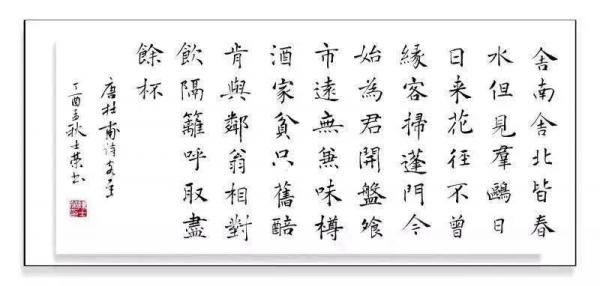 舍南舍北皆春
水但見羣鷗日
日来花徑不曾
緣客掃蓬門今
始為君開盤飧
市遠無兼味樽
酒家貧只舊醅
肯與鄰翁相對
飲隔籬呼取盡
餘杯
唐杜甫詩客至
丁酉孟秋士荣书